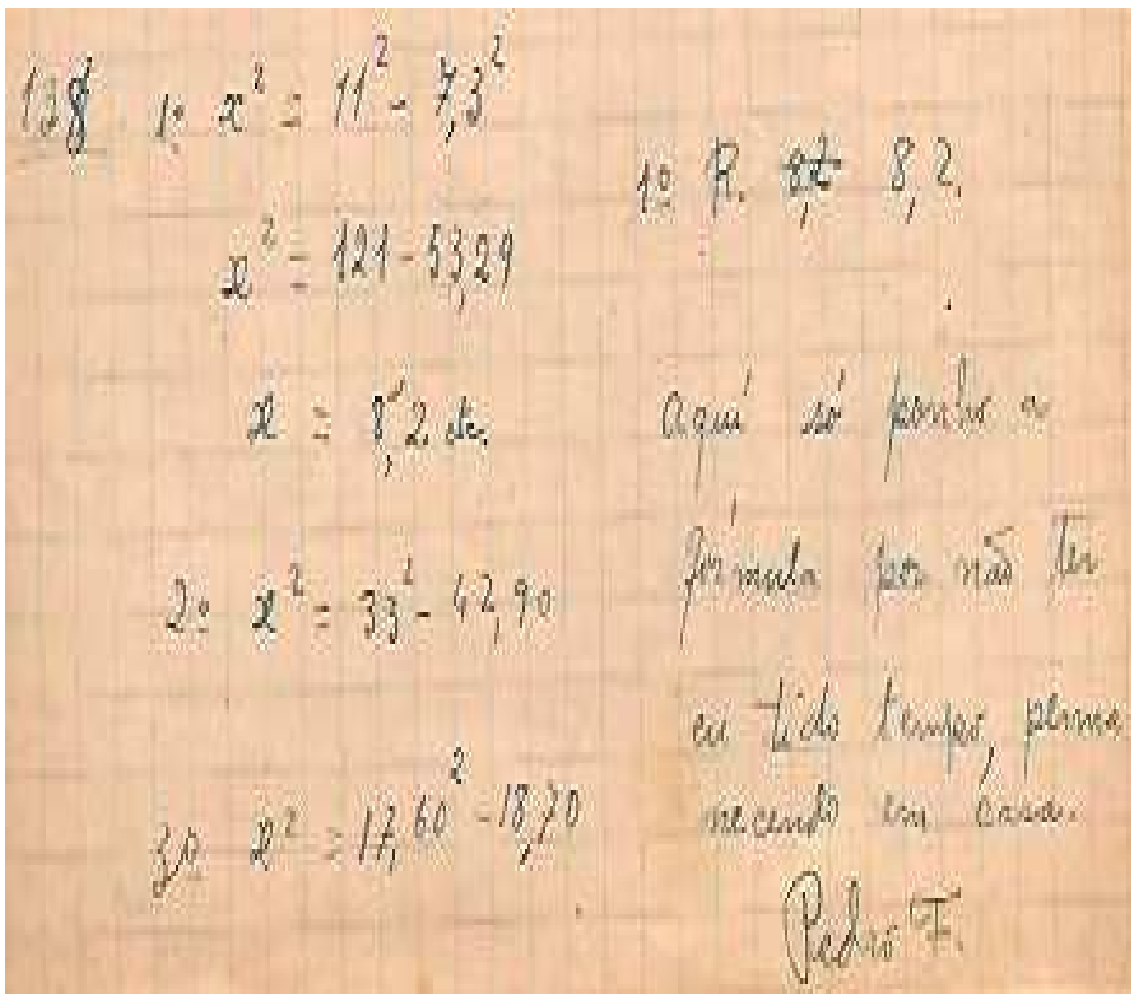 138 1º x² = 11² - 7,3²
x² = 121 - 53,29
x = 8,2
2º x² = 33² - 42,90
3º x² = 17,60² - 18,70
1º R. 8,2.
aqui só a
fórmula por não ter
eu tido tempo, perma
necendo em
Pedro F.